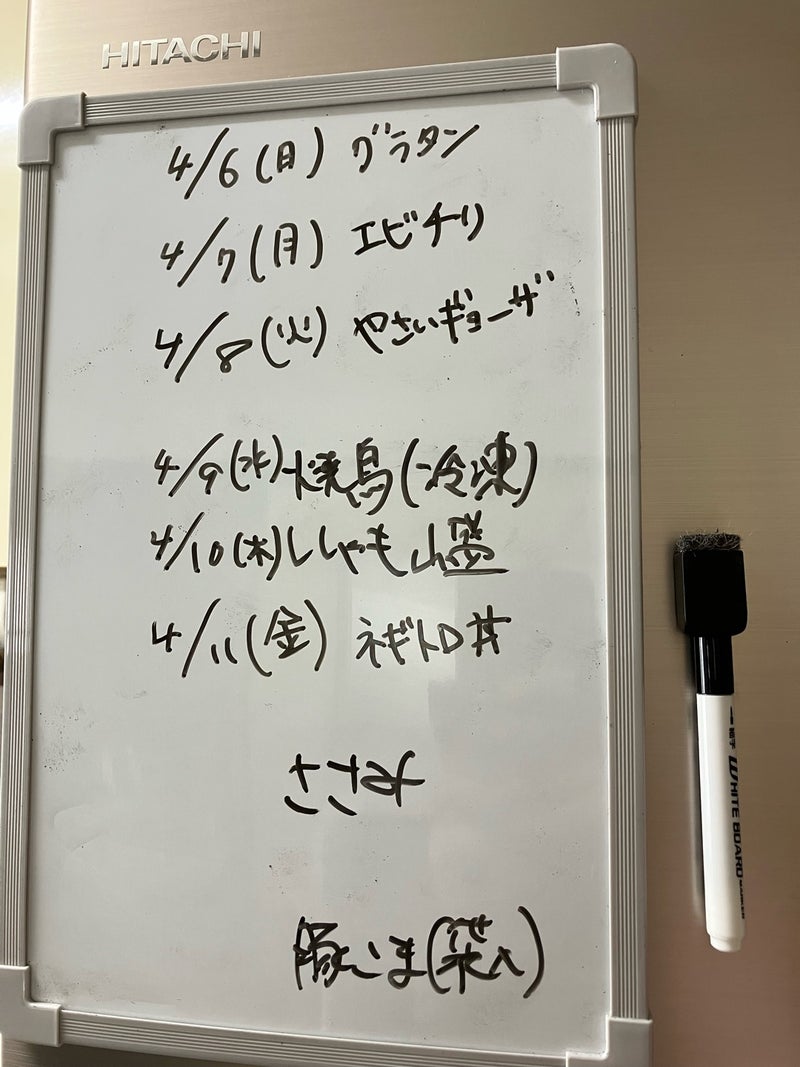 HITACHI
4/6(日) グラタン
4/7(月) エビチリ
4/8(火) やさいギョーザ
4/9(水) 焼鳥(冷凍)
4/10(木) ししゃも
4/11(金) ネギトロ丼
ささみ
豚こま(袋入)
WHITE BOARD